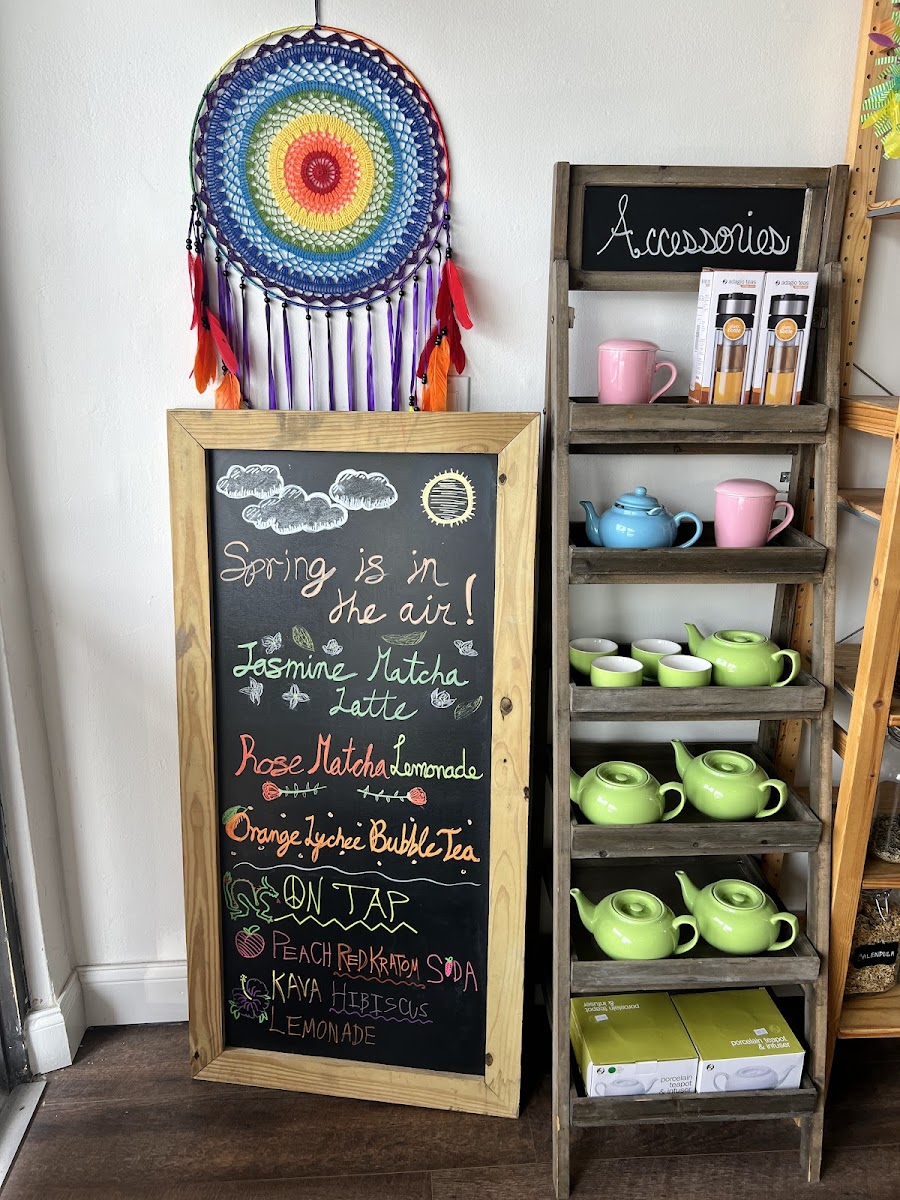 Accessories
adagio teas
adagio teas
Spring is in
the air!
Jasmine Matcha
Latte
Rose Matcha Lemonade
Orange Lychee Bubble Tea
ON TAP
PEACH RED KRATOM SODA
KAVA HIBISCUS
LEMONADE
CALENDULA
porcelain teapot
& infuser
porcelain teapot
& infuser
porcelain teapot
& infuser
porcelain teapot
& infuser